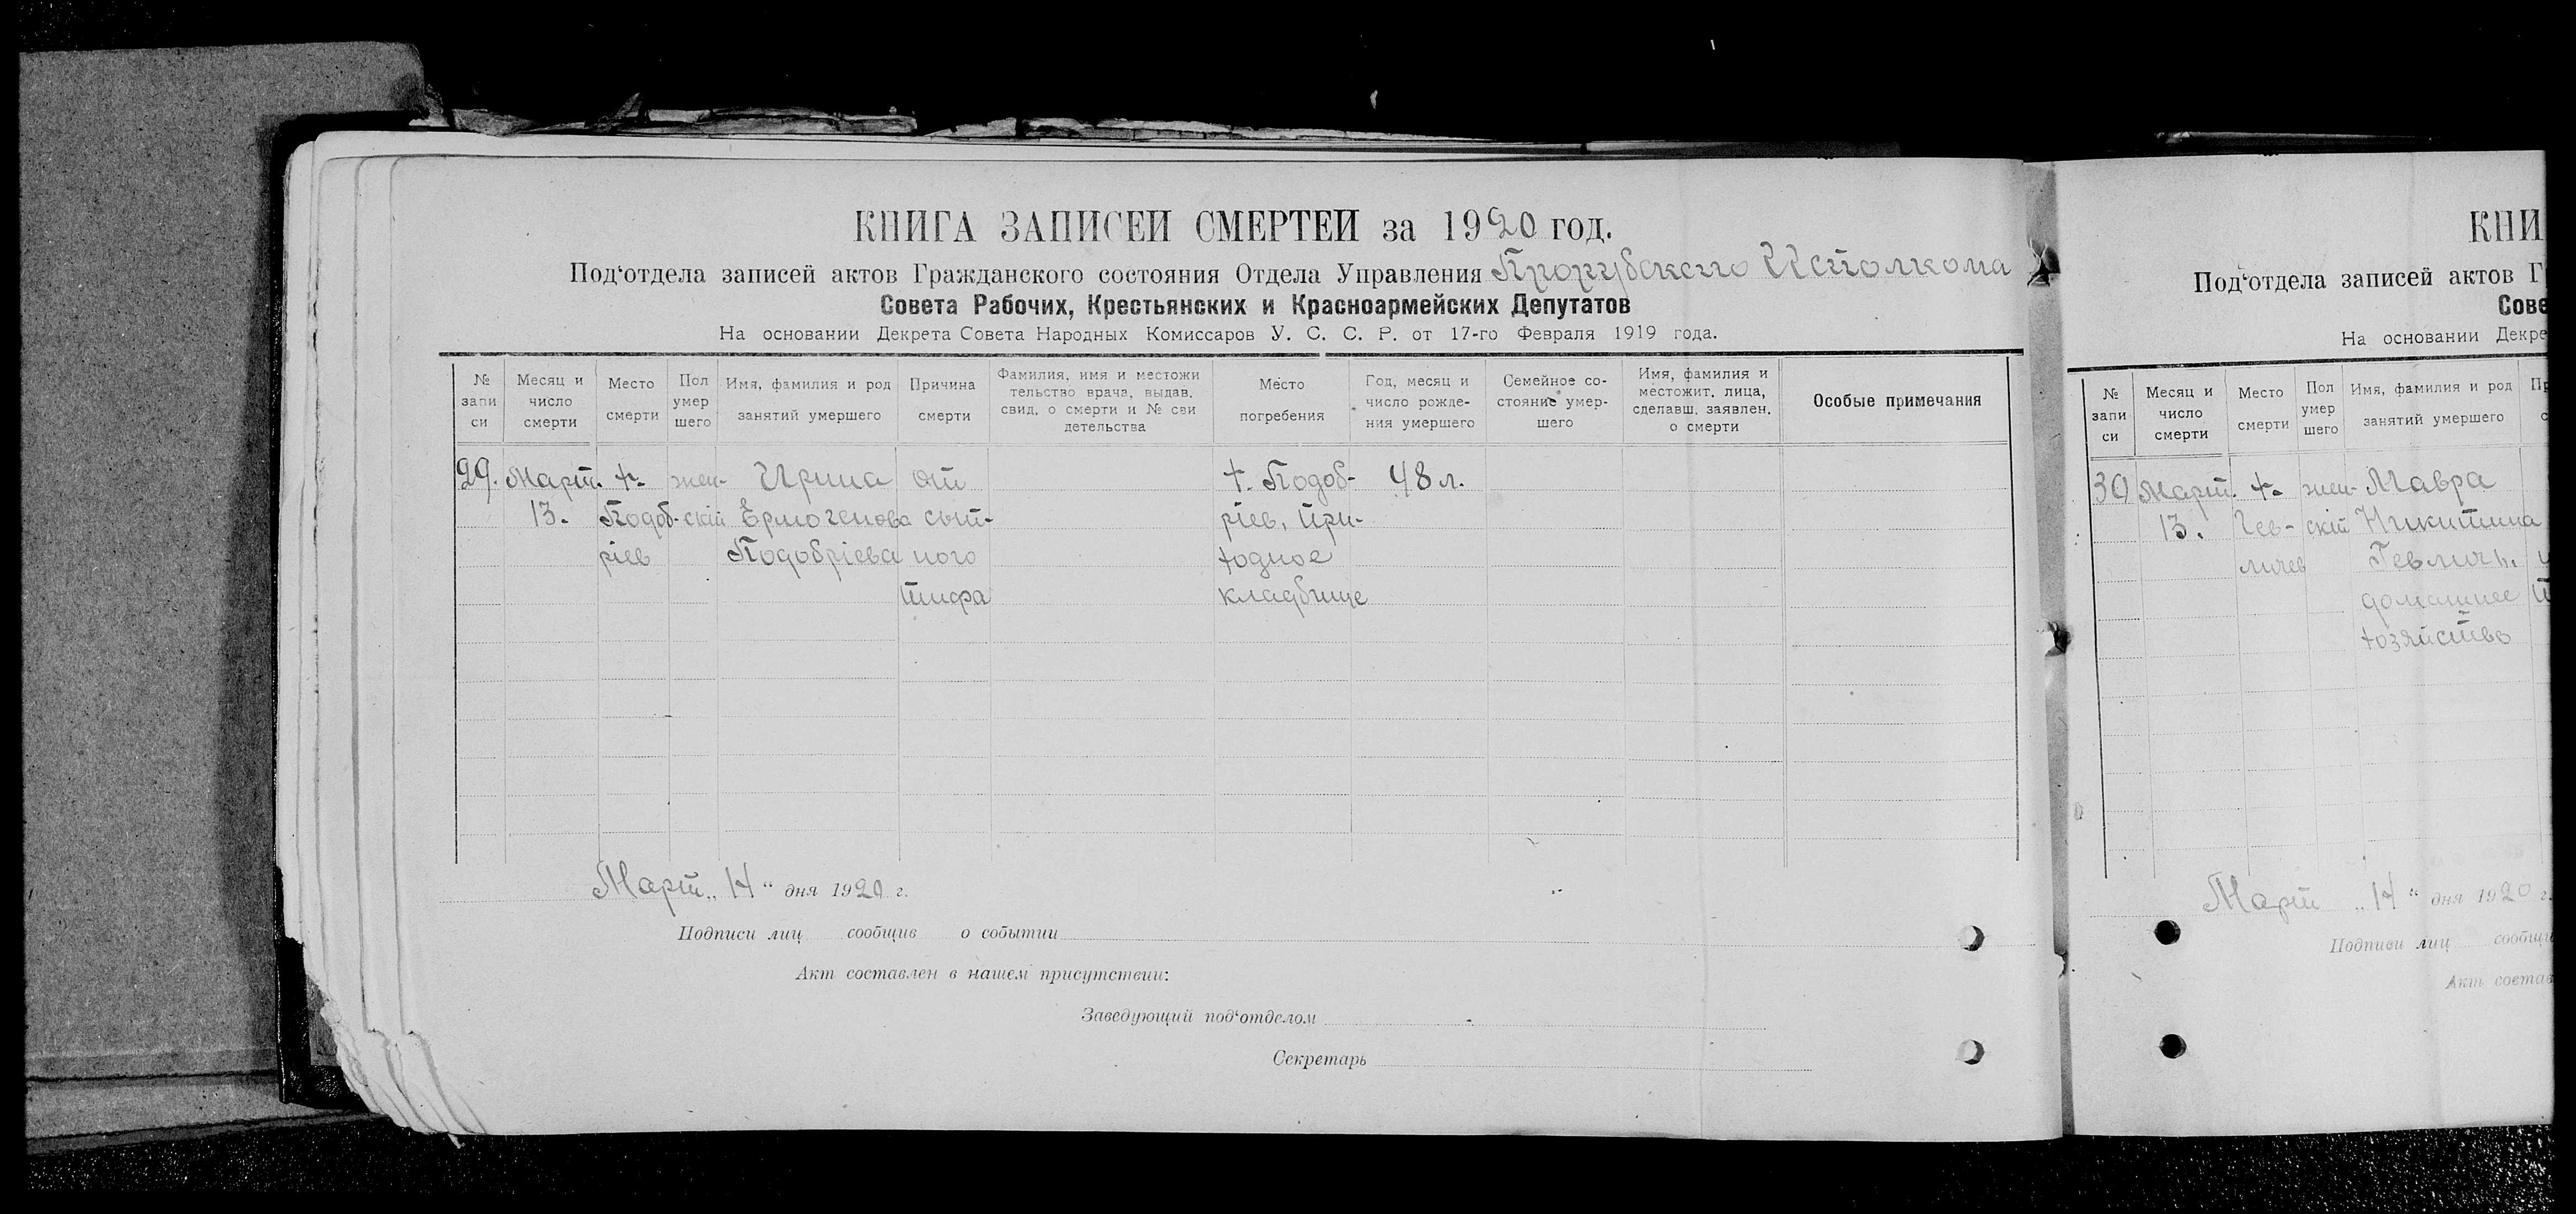 КНИГА ЗАПИСЕЙ СМЕРТЕЙ за 1920 год.
Под‘отдела записей актов Гражданского состояния Отдела Управления Прорубского Исполкома
Совета Рабочих, Крестьянских и Красноармейских Депутатов
На основании Декрета Совета Народных Комиссаров У. С. С. Р. от 17-го Февраля 1919 года.
№ запи си
Месяц и число смерти
Место смерти
Пол умер шего
Имя, фамилия и род занятий умершего
Причина смерти
Фамилия, имя и местожи тельство врача, выдав. свид. о смерти и № сви детельства
Место погребения
Год, месяц и число рожде- ния умершего
Семейное со- стояние умер- шего
Имя, фамилия и местожит. лица, сделавш. заявлен. о смерти
Особые примечания
29. Март. х. жен- Ирина от х. Подоб- 48 л.
13. Подоб- скій Ермогенова сып- ріев, при-
ріев Подобріева ного ходное
тифа кладбище
Март „ 14 “ дня 1920 г.
Подписи лиц сообщив о событии
Акт составлен в нашем присутствии:
Заведующий под‘отделом
Секретарь
КНИ
Под‘отдела записей актов Г
Сове
На основании Декре
№ запи си
Месяц и число смерти
Место смерти
Пол умер шего
Имя, фамилия и род занятий умершего
30 Март. х. жен- Мавра
13. Гев- скій Никитина
личев Гевлич.
домашнее
хозяйство
Март „ 14 “ дня 1920 г.
Подписи лиц сообщи
Акт состав